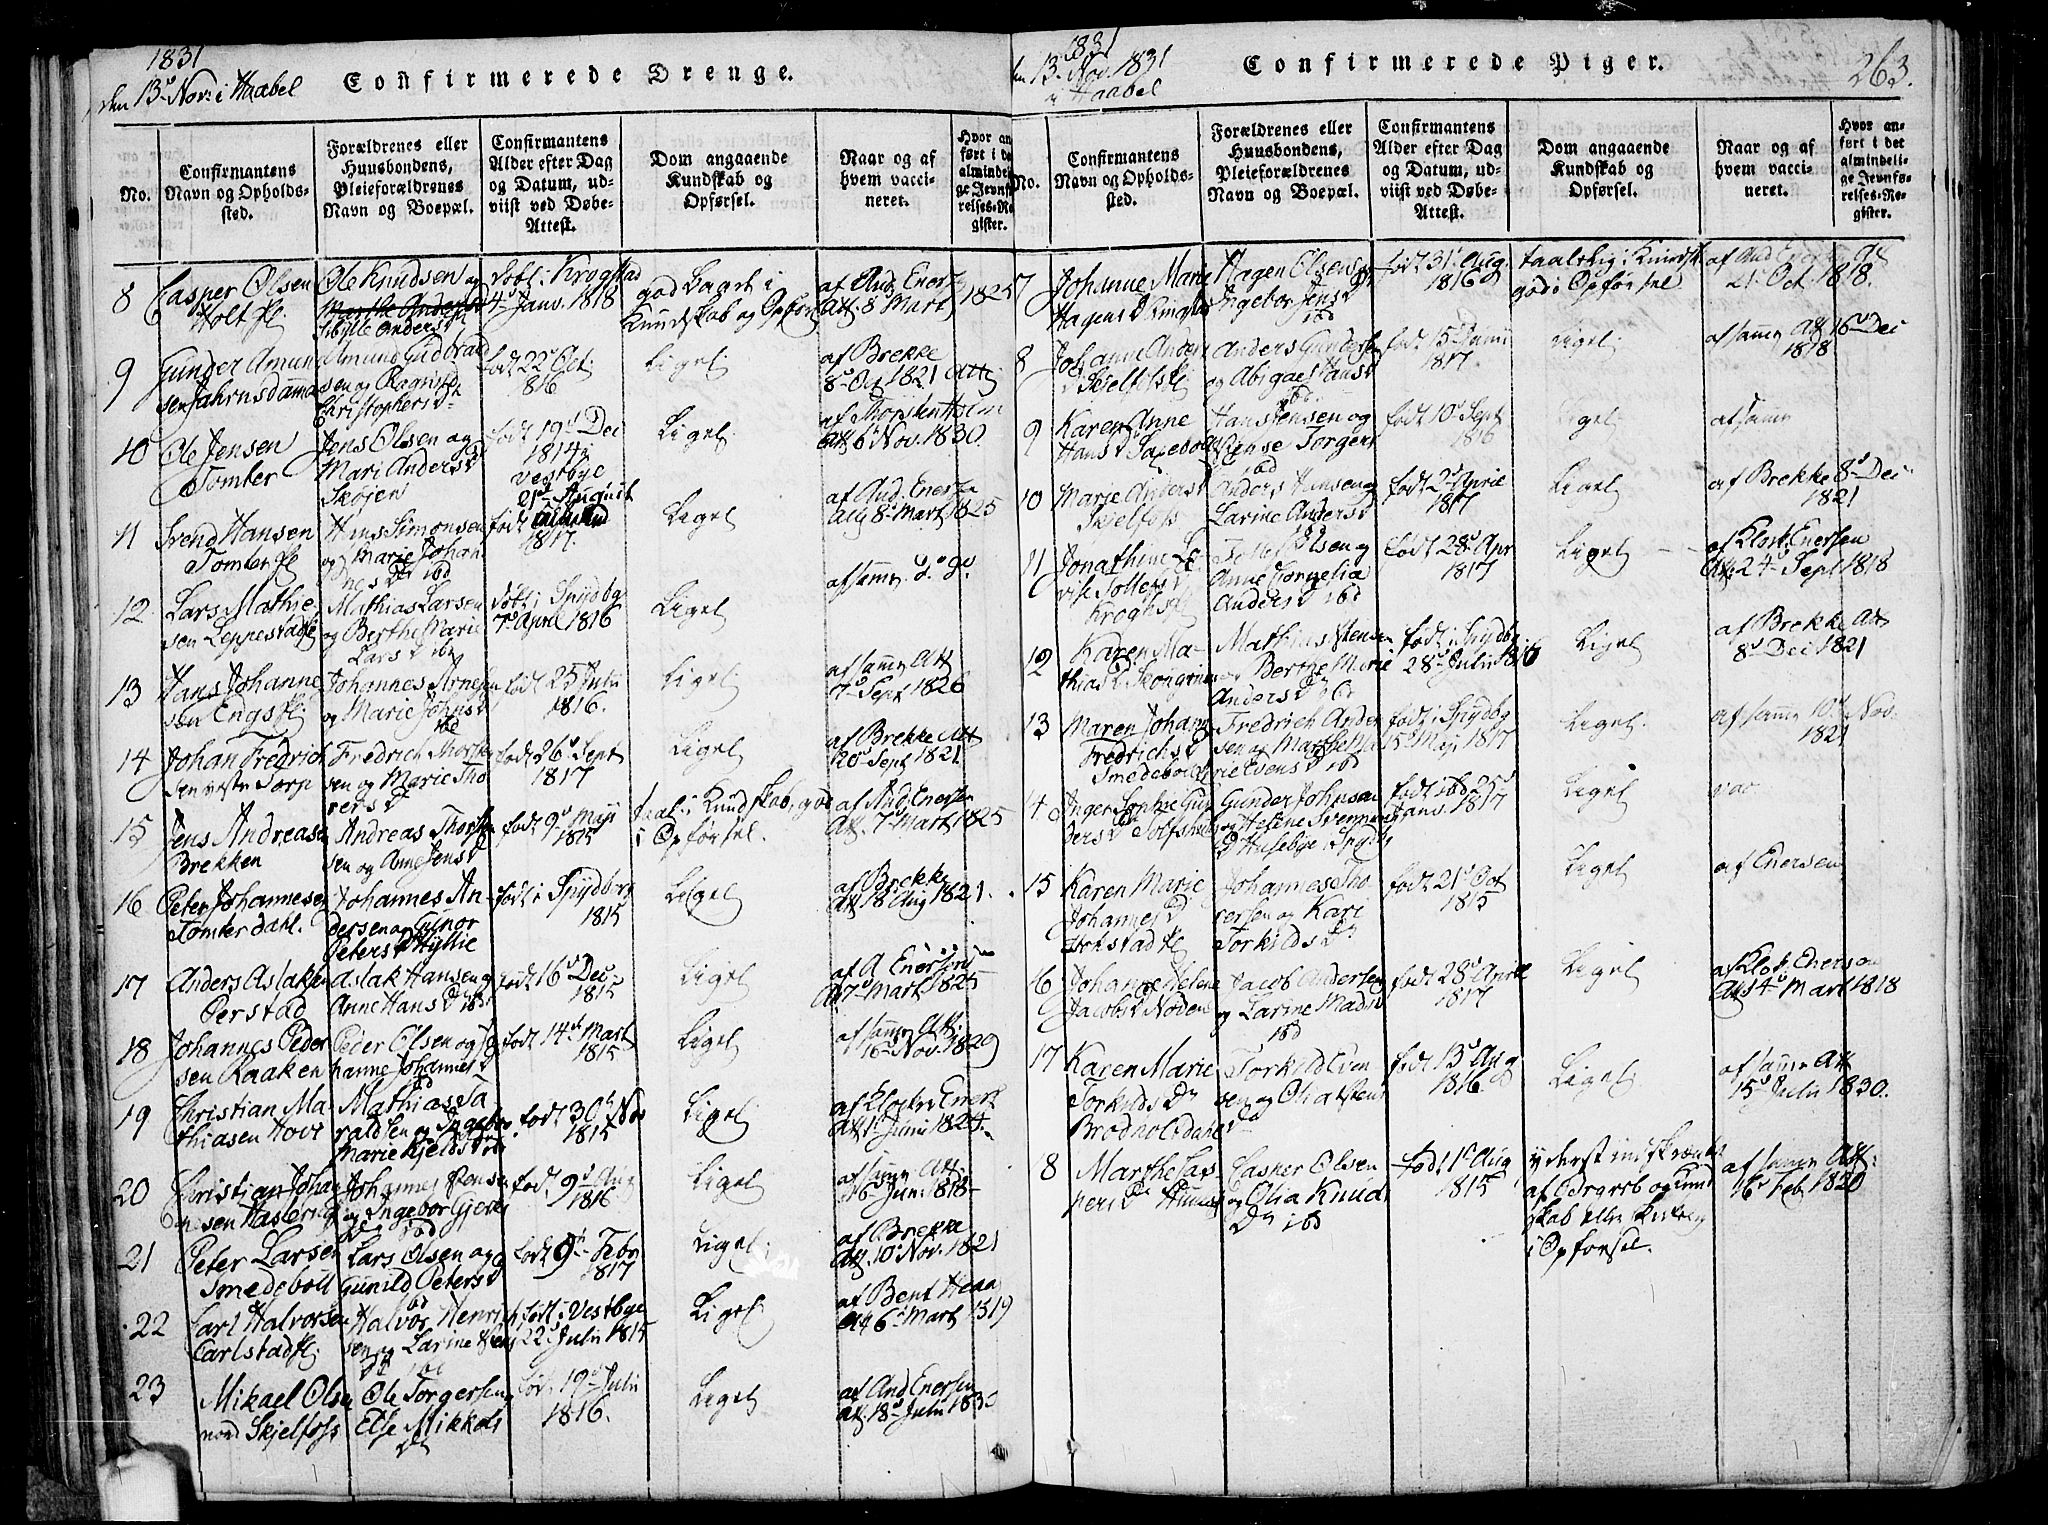 1831
den 13de Nov: i Haabel
Confirmerede Drenge.
No.
Confirmantens
Navn og Opholds-
sted.
Forældrenes eller
Huusbondens,
Pleieforældrenes
Navn og Boepæl.
Confirmantens
Alder efter Dag
og Datum, ud-
viist ved Døbe-
Attest.
Dom angaaende
Kundskab og
Opførsel.
Naar og af
hvem vacci-
neret.
Hvor an
ført i de
almindel
ge Jevnf
relses-Re
gister.
8
Casper Olsen
Holt
Ole Knudsen og
Marthe Andersd
Anders
døbt i Krogstad
4 Janv. 1818
god Kundskab og Opførs
af And. Eners
Att. 8 Mart 1825
9
Gunder Amun
sen Jahrnsdamm
Amund Gudbrand
sen og Ragnild
Christophersd
født 22 Oct:
816
Ligel:
af Brekke
8 Oct 1821 Att:
10
Ole Jensen
Tomter
Jens Olsen og
Mari Andersd
Skøjen
født 19 Dec
1814
Vestbye
Ligel:
af Thorsten Holm
Att 6 Nov. 1830
11
Svend Hansen
Tomter
Hans Simonsen
og Marie Johan
nesd ibd
21 August
født
1817.
Ligel
af And. Eners
Att 8 Mart 1825
12
Lars Mathie
sen Leppestad
Mathias Larsen
og Berthe Marie
Larsd ibd
døbt i Spydbg
7 April 1816
Ligel
af samme
13
Hans Johanne
sen Engs
Johannes Arnesen
og Marie Johnsd
ibd
født 25 Julii
1816.
Ligel:
af samme Att
7 Sept 1826
14
Johan Fredrich
sen Torp
Fredrich Thor
sen og Marie Tho
rersd
født 26 Sept
1817
Ligel
af Brekke Att
20 Sept 1821
15
Jens Andreas
Brekken
Andreas Thors
sen og Anne Jensd
født 9 Maji
1815
taal: i Kundskab, god
i Opførsel.
af And. Enersen
Att. 7 Mart 1825
16
Peter Johannesen
Tomter dahl.
Johannes An-
dersen og Gunor
Petersd Hyllie
født i Spydberg
1815
Ligel
af Brekke
Att 18 Aug 1821.
17
Anders Aslaksen
Perstad
Aslak Hansen og
Anne Hansd ibd
født 16 Dec-
1815
Ligel
af A Enersen
7 Mart 1825
18
Johannes Peder
sen Raaken
Peder Olsen og Jo
hanne Johannesd
ibd
født 14de Mart
1815
Ligel
af samme Att:
16 Nov. 1829
19
Christian Ma
thiasen Hovt
Mathias Ta
raldsen og Ingebor
Marie Kjeldsd
født 30 Nov
1815
Ligel
af Klocker Eners
Att 1 Junii 1824.
20
Christian Johan
nsen Haslerud
Johannes Jensen
og Ingebor Gjers
ibd
født 9 Aug
1816
Ligel
af samme Att.
16 Jun: 1818
21
Peter Larsen
Smedeböll
Lars Olsen og
Gunild Petersd
ibd
født 9 Febr
1817
Ligel:
af Brekke
Att. 10 Nov. 1821
22
Carl Halvorsen
Carlstad
Halvor Henrich
sen og Larine
ibd
født i Vestbye
22 Julii 1815
Ligel
af Bent
Att 6 Mart 1819
23
Mikael Olsen
nord Skjelfoss
Ole Torgersen
Else Mikkels
født 19 Julii
1816.
Ligel
af And Enersen
att. 18 Julii 1830
1831
den 13 Nov. 1831
i Haabel
Confirmerede Piger.
263.
No.
Confirmantens
Navn og Opholds-
sted.
Forældrenes eller
Huusbondens,
Pleieforældrenes
Navn og Boepæl.
Confirmantens
Alder efter Dag
og Datum, ud-
viist ved Døbe-
Attest.
Dom angaaende
Kundskab og
Opførsel.
Naar og af
hvem vacci-
neret.
Hvor an-
ført i det
almindeli-
ge Jevnfø-
relses-Re-
gister.
7
Johanne Marie
Hagensd
Hagen Olsen og
Ingebor Jensd
ibd
født 31 Aug
1816
taalelig i Kundsk
god i Opførsel
af And Att
21 Oct. 1818.
8
Johanne Anders
Skjelfos
Anders Gunders
og Abigael Hansd
ibd.
født 15 Junii
1817.
Ligel:
af samme Att 16 Dec
1818
9
Karen Anne
Hansd
Hans Jensen og
Torgers
ibd
født 10 Sept
1816
Ligel
af samme
10
Marie Andersd
Skjelfoss
Anders Hansen og
Larine Andersd
ibd
født 2 Aprile
1817
Ligel
af Brekke 8 Dec-
1821
11
Jonathine
Tollefsd
Krogh
Tollef Olsen og
Anne Cornelia
Andersd ibd
født 28 Apr
1817
Ligel
af Klock. Enersen
Att. 24 Sept 1818
12
Karen Ma-
thiasd
Mathias
Berthe Marie
Andersd ibd
født i Spydbg
28 Julii 1816
Ligel
af Brekke Att
8 Dec 1821
13
Maren Johanne
Fredrichsd
Smedeböll
Fredrich Ander
sen og Marthe Ma
rie Evensd ibd
født i Spydbg
15 Maji 1817
Ligel.
af samme 10 Nov.
1821
14
Inger Sophie Gun
dersd
Gunder Johnsen
og Helene Svennung
Husebye i Spydb
født ibd 25
Janv. 1817
Ligel
vac
15
Karen Marie
Johannesd
Johannes Tho
rersen og Kari
Torkildsd
født 21 Oct
1815
Ligel
af Enersen
16
Johanne Helene
Jacobsd Noden
Jacob Andersen
og Larine Mads
ibd
født 28 Aprile
1817
Ligel
af Klok. Enerson
Att 4 Mart 1818
17
Karen Marie
Torkildsd
Brødholtdahl
Torkild Even
sen og Olia Stens
født 13 Aug
1816
Ligel
af samme Att
15 Julii 1830.
8
Marthe Cas-
persd
Casper Olsen
og Olia Knuds
ibd
født 11 Aug
1815
yderst indskrænke
af og Kund
skab
i Opførsel.
af samme Att:
16 Feb 1820